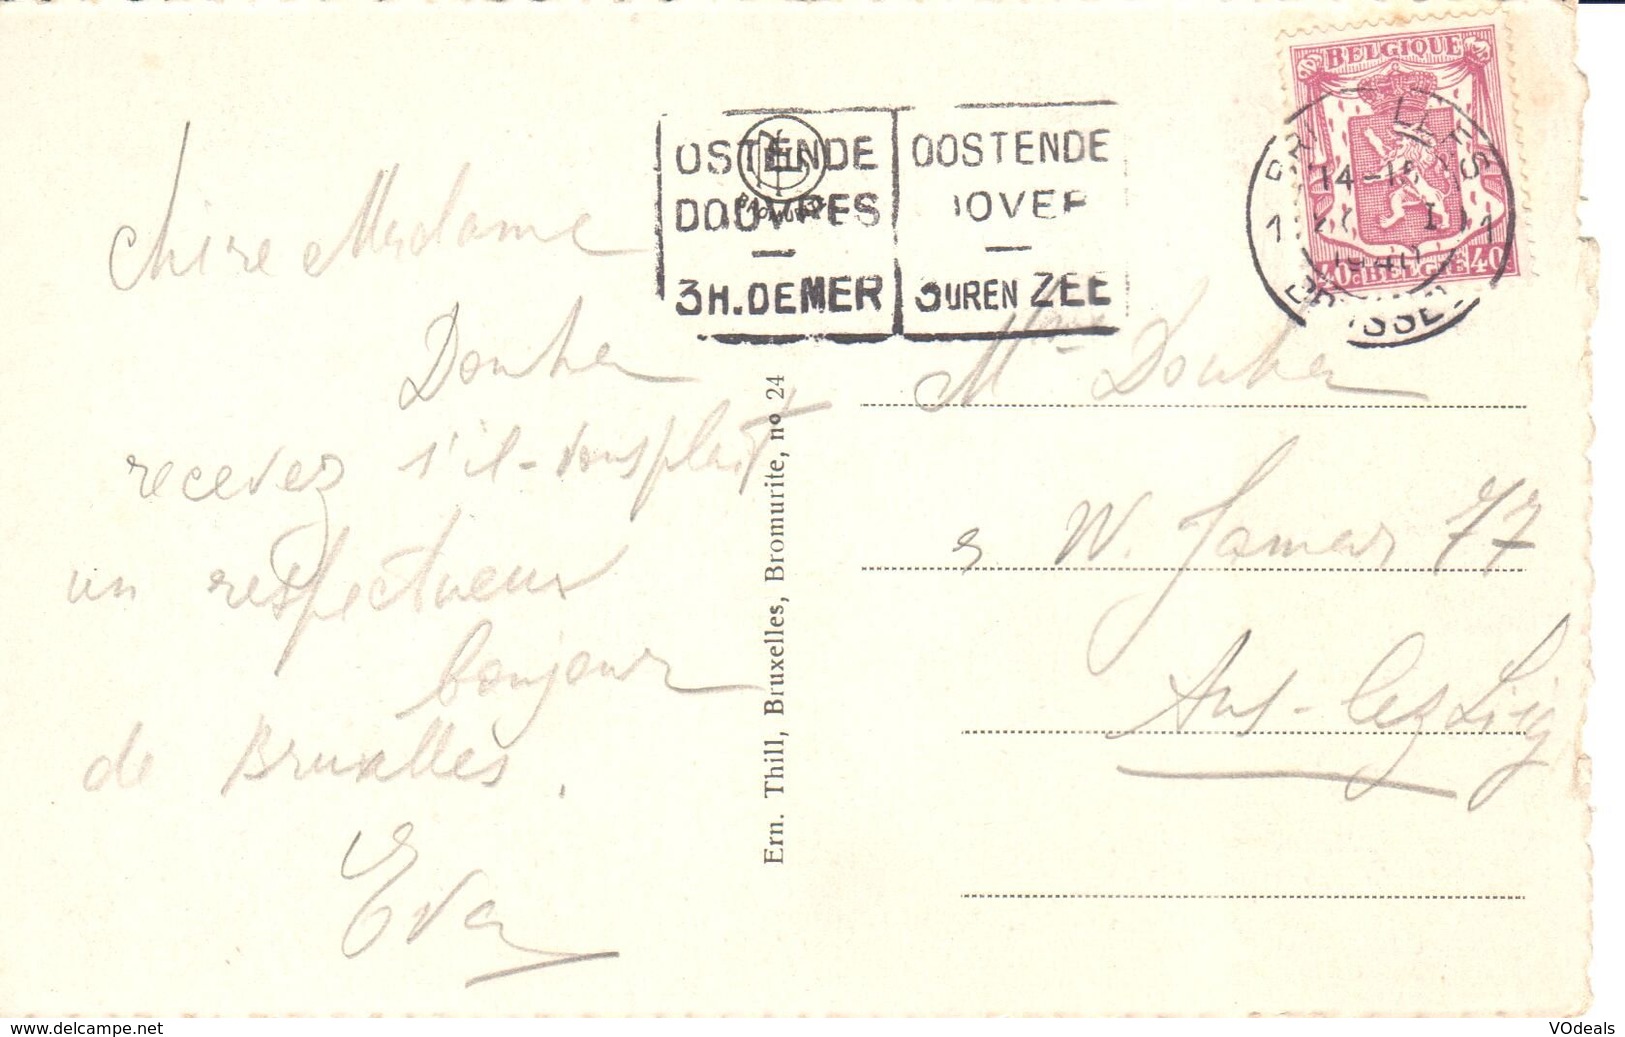 Chere Madame
Douha
recevez s'il-vous plait
un respectueux
bonjour
de Bruxelles.
Eva
OSTENDE
DOUVRES
—
3H. DE MER
OOSTENDE
DOVER
—
3 UREN ZEE
BELGIQUE
40c BELGIË 40
14-15
1 1
BRUSSEL
Ern. Thill, Bruxelles, Bromurite, nº 24
Mme Douha
W. Jamar 77
Ans-lez Liég
www.delcampe.net
VOdeals